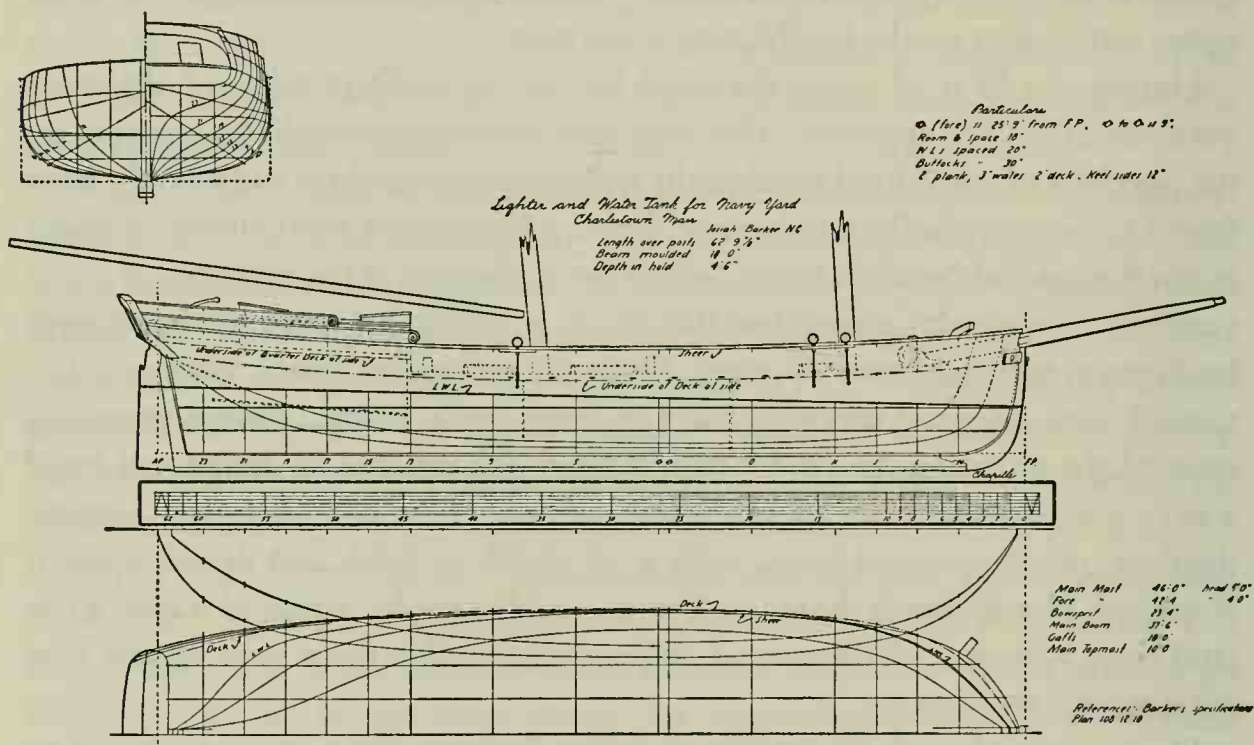 Particulars
(fore) is 25'9" from F.P.
Room & space 18"
W.L.s spaced 20"
Buttocks " 30"
2" plank, 3" wales 2" deck. Keel sides 12"
Lighter and Water Tank for Navy Yard
Charlestown Mass
Josiah Barker N.C.
Length over posts 62' 9⅞"
Beam moulded 18' 0"
Depth in hold 4' 6"
Underside of Quarter Deck at side
Sheer
L.W.L.
Underside of Deck at side
A.P. F.P.
Chapelle
65 60 55 50 45 40 35 30 25 20 15 10 9 8 7 6 5 4 3 2 1 0
Deck
Sheer
Deck
L.W.L.
Main Mast 46'-0" head 5'0"
Fore " 42'4 " 4'0"
Bowsprit 23'4"
Main Boom 37'6"
Gaffs 18'0"
Main Topmast 10'0
References:- Barker's specifications
Plan 108 12 10